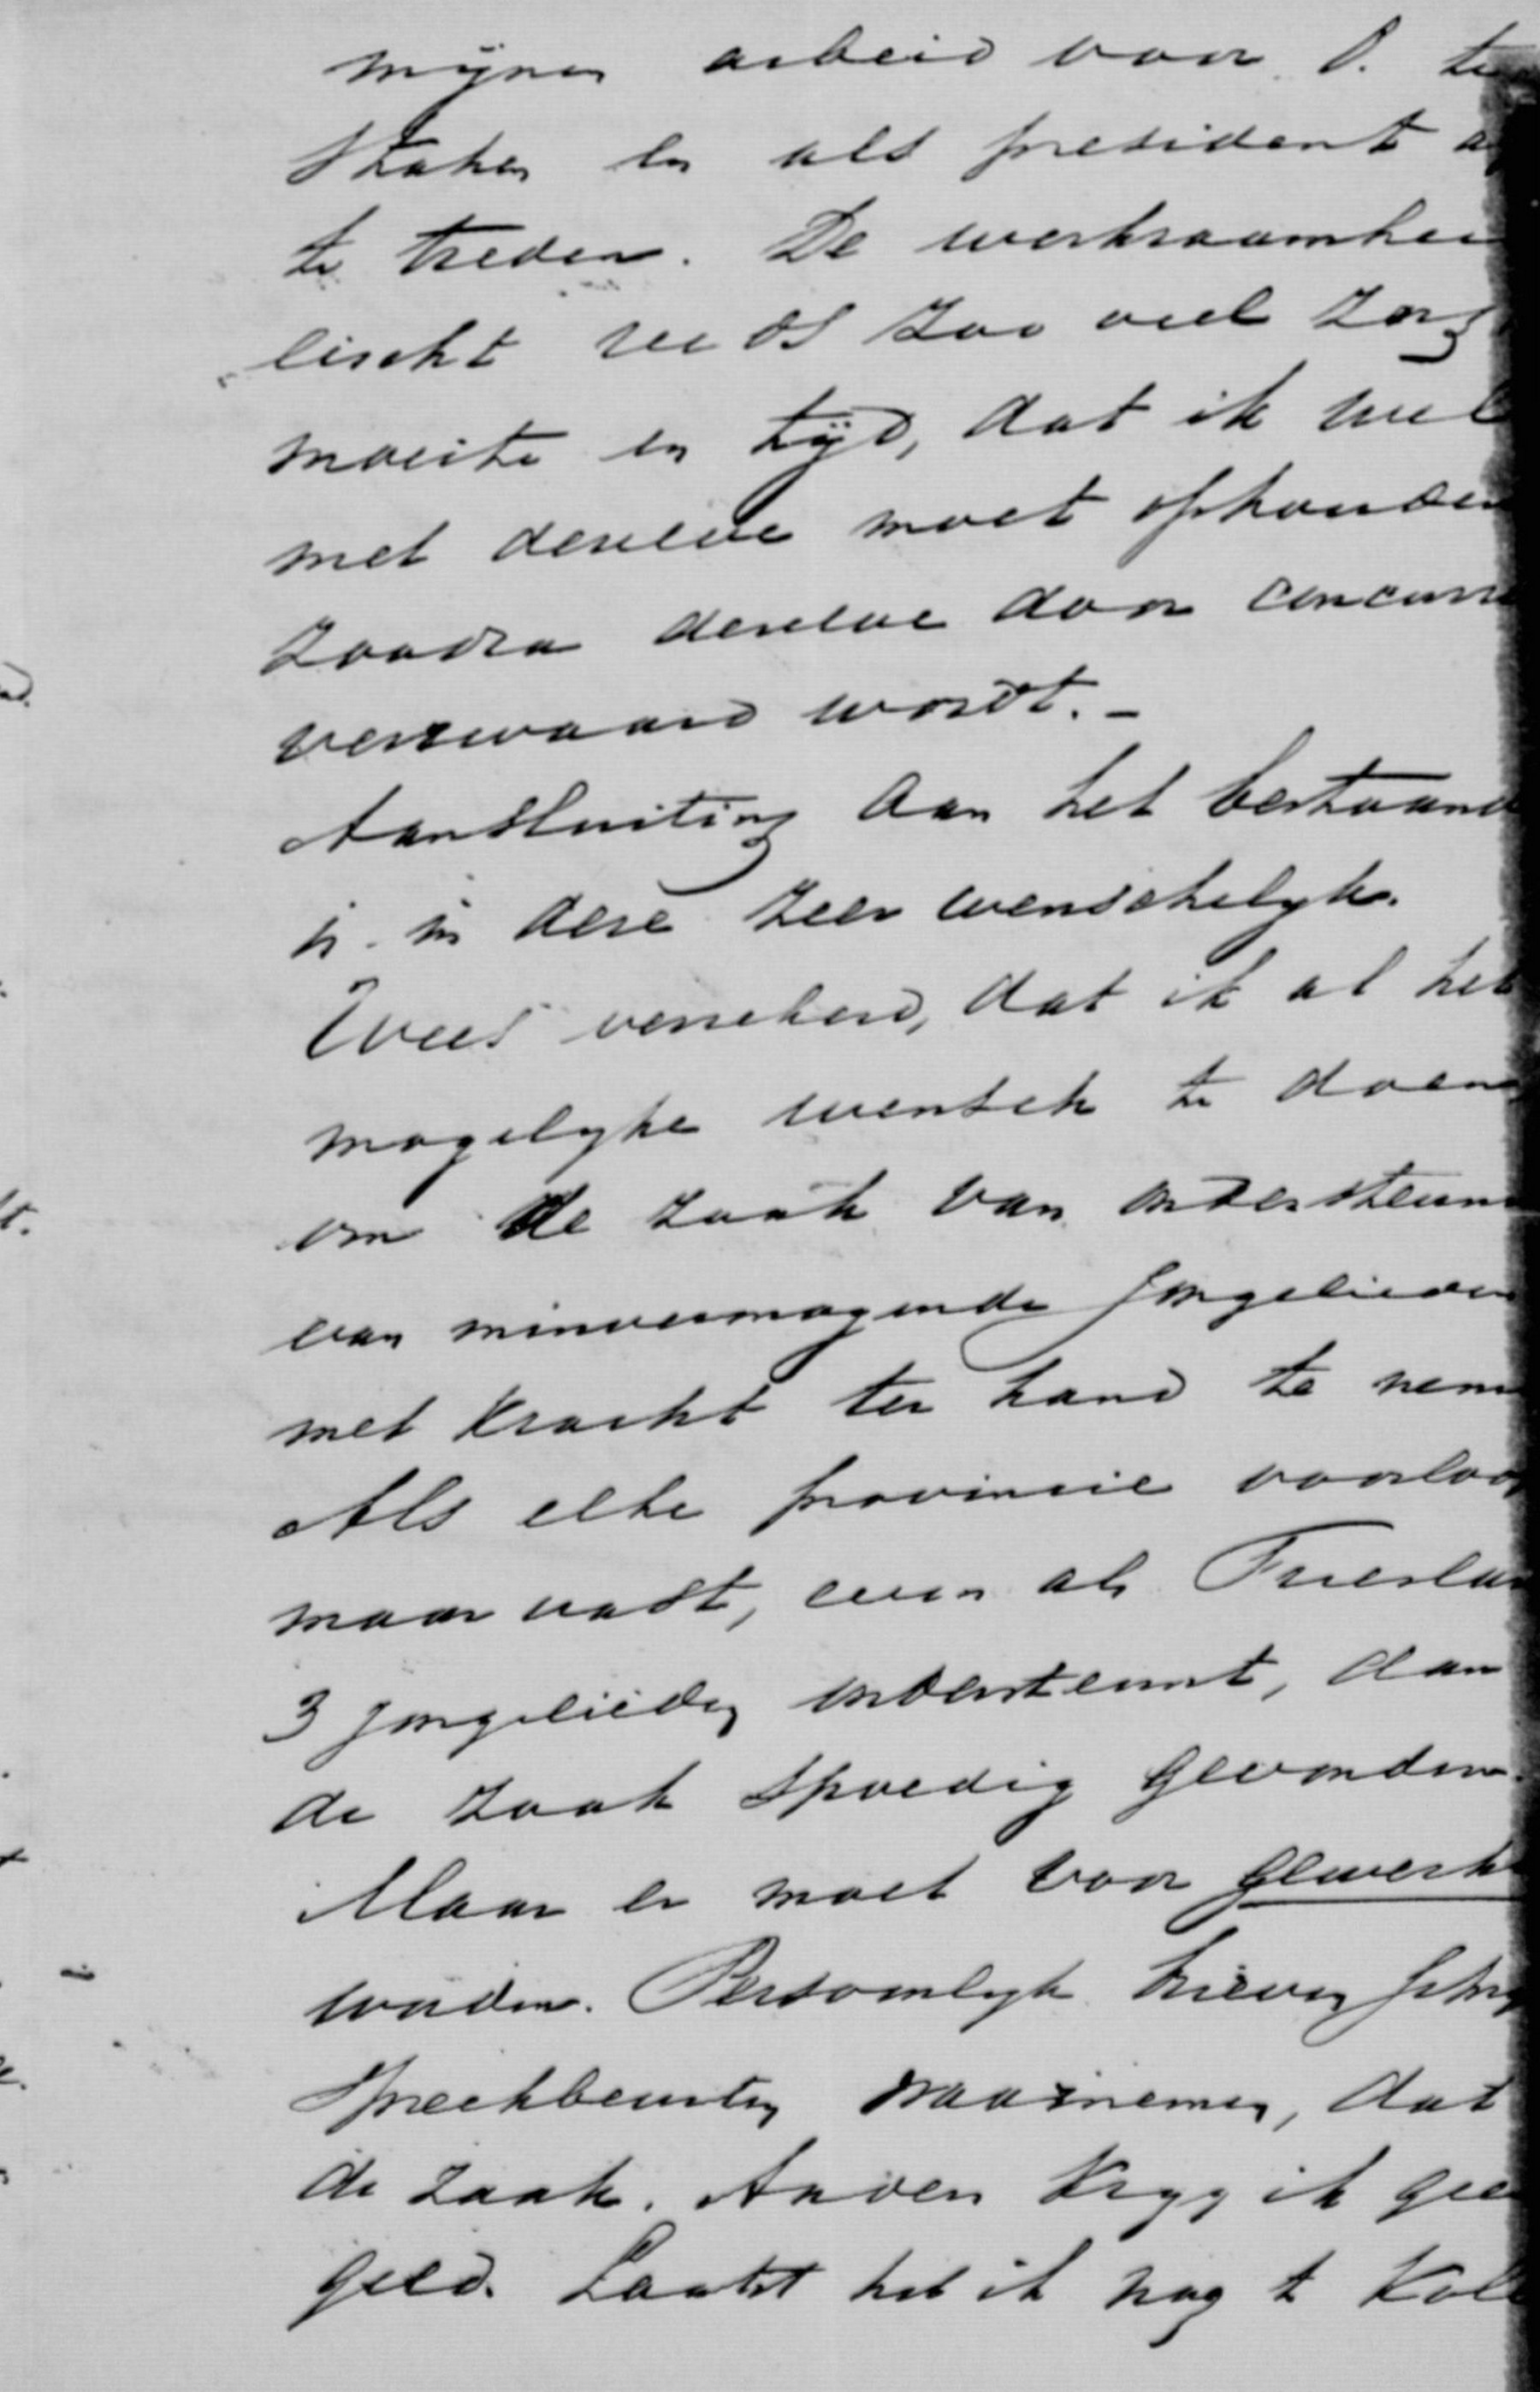 mijnen arbeid voor O. te
staken en als president a
te treden. De werkzaamhei
eischt reeds zoo veel zorg
moeite en tijd, dat ik wel
met dezelve moet ophouden
zoodra dezelve door concurre
verzwaard wordt. -
Aansluiting aan het bestaand
is in deze zeer wenschelijk.
Wees verzekerd, dat ik al het
mogelijke wensch te doen
om de zaak van ondersteun
van minvermogende jongelieden
met kracht ter hand te nem
Als elke provincie voorloo
maar vast, even als Frieslan
3 jongelieden ondersteunt, dan
de zaak spoedig gevonden.
Maar er moet voor gewerkt
worden. Persoonlijk brieven schrij
Spreekbeurten waarnemen, dat
de zaak. Anders krijg ik gee
geld. Laatst heb ik nog te Kol